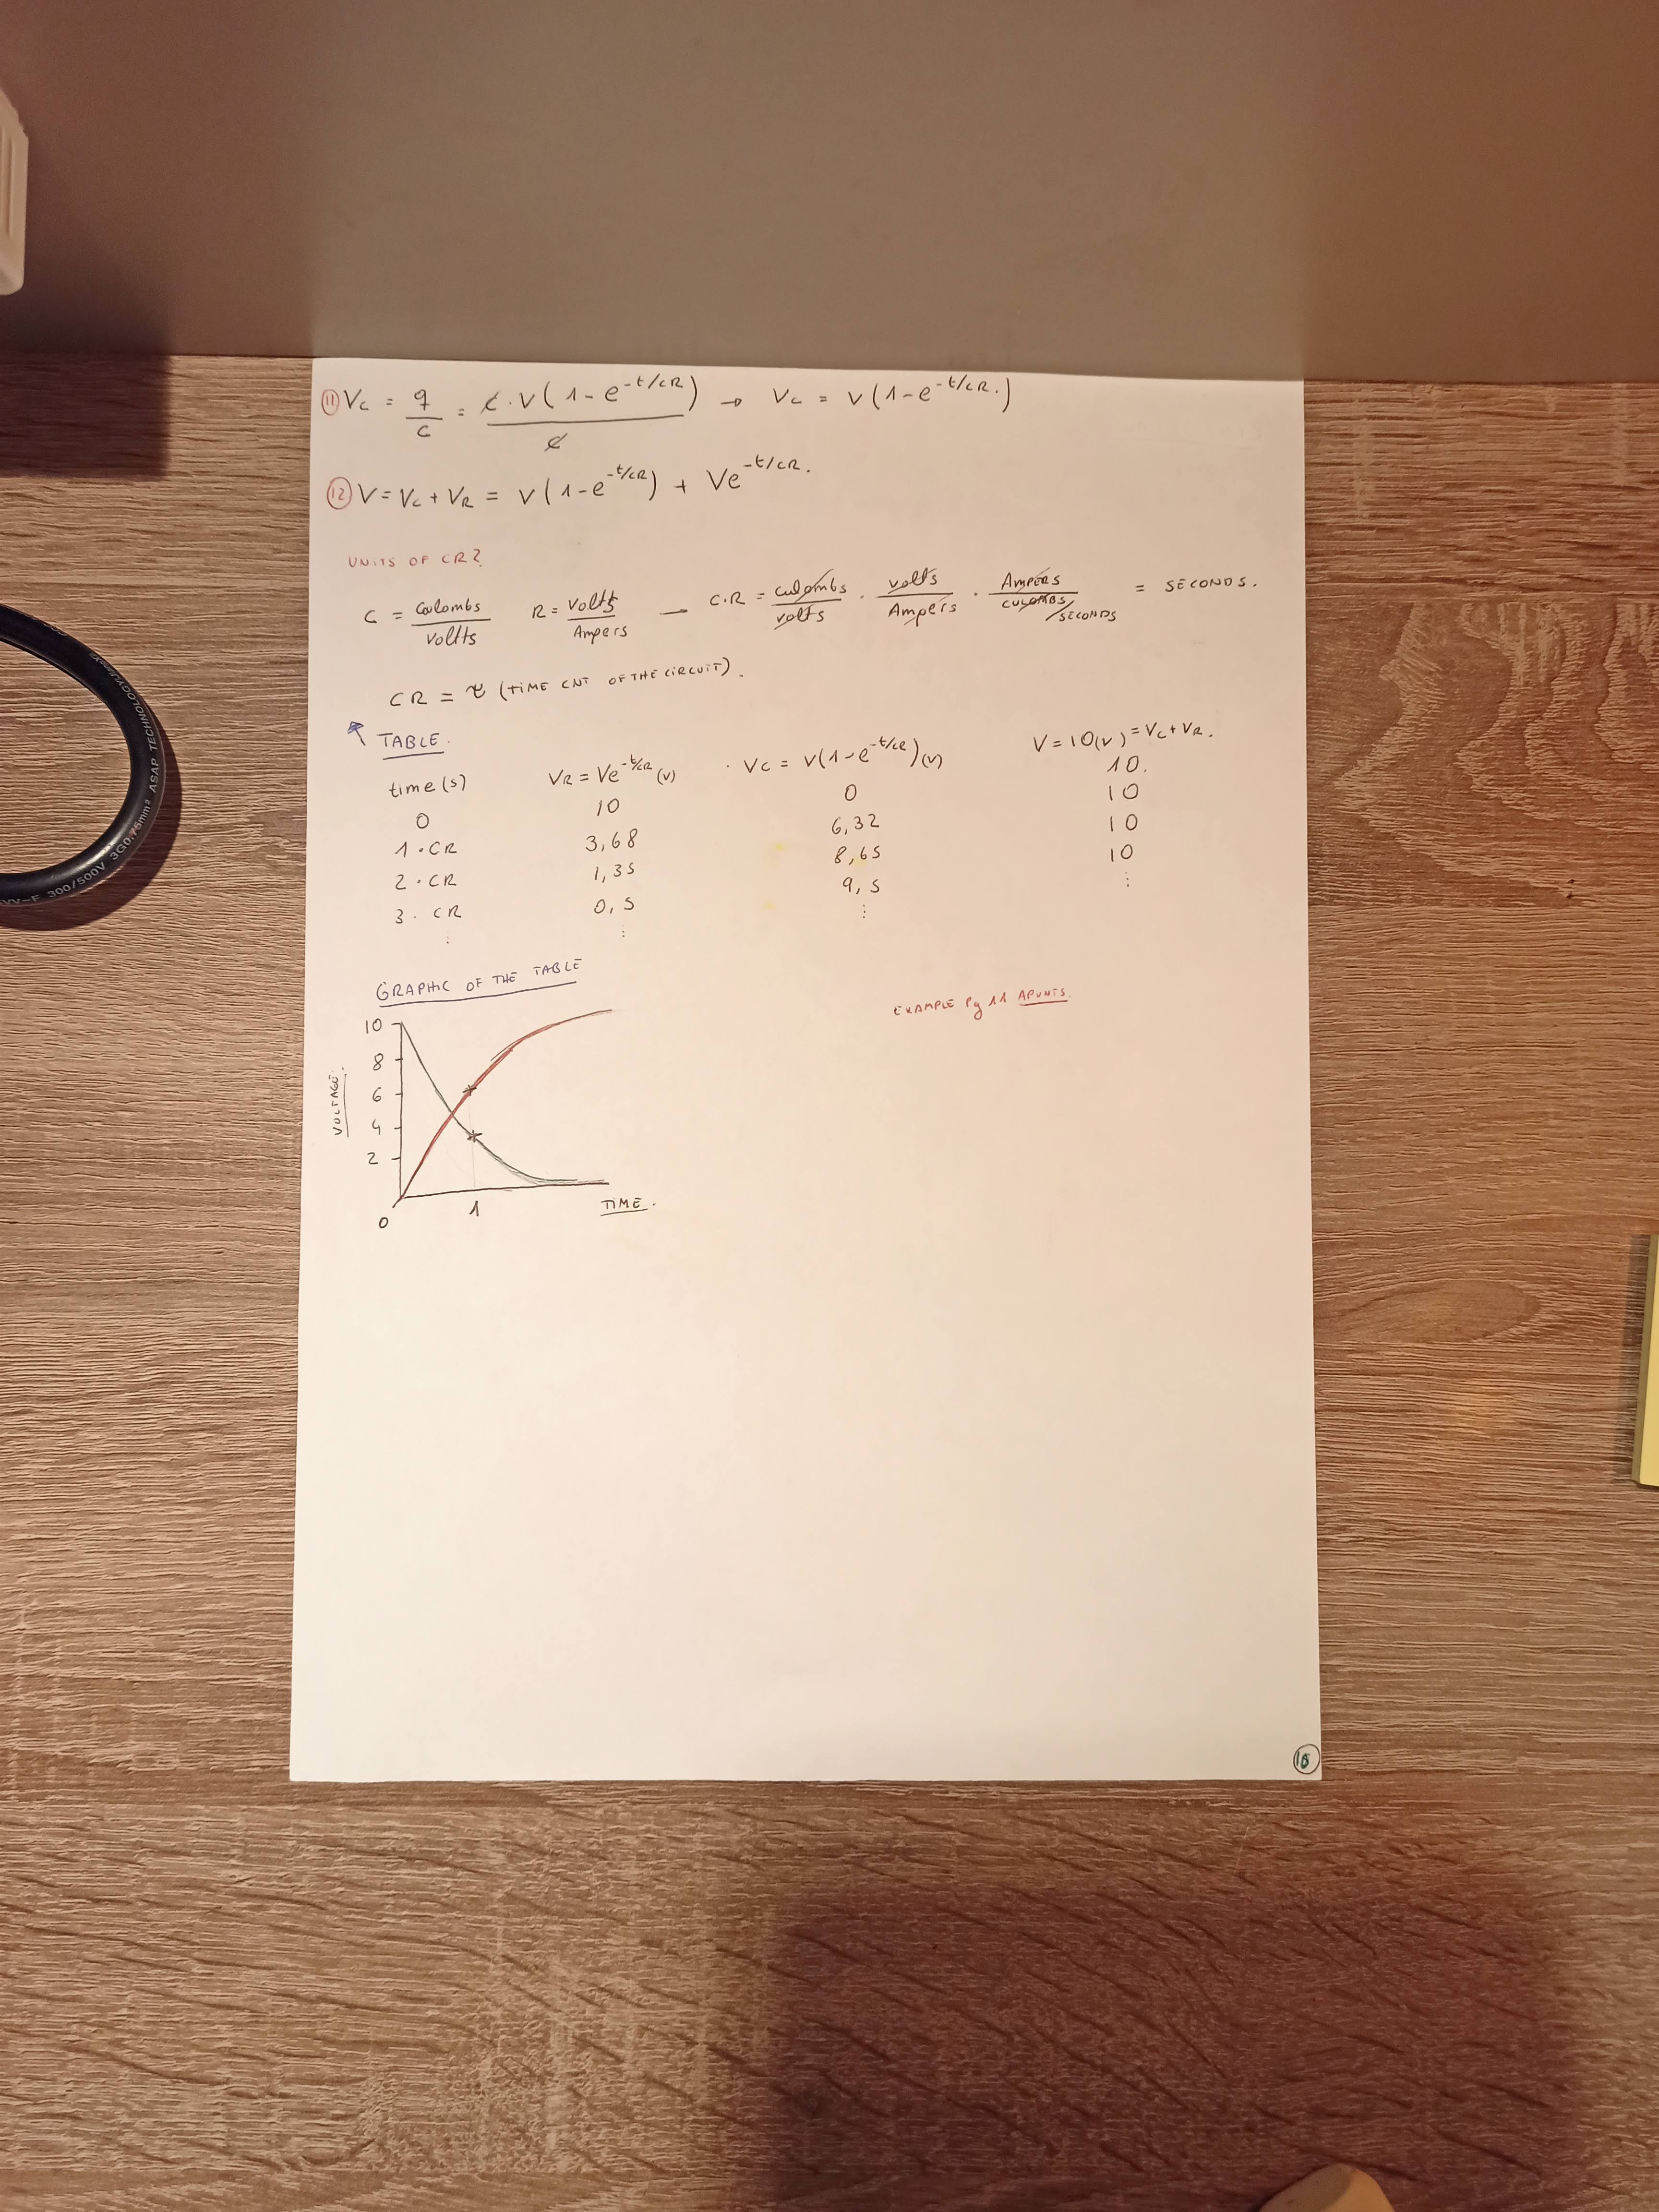 11 Vc = q/c = c·V(1-e^-t/CR)/c → Vc = V(1-e^-t/CR.)
12 V=Vc+VR = V(1-e^-t/CR) + Ve^-t/CR.
UNITS OF CR?
C = Coulombs/voltts R = volts/Ampers — C·R = culombs/volts · volts/Ampers · AMPERS/CULOMBS/SECONDS = SECONDS.
CR = τ (TIME CNT OF THE CIRCUIT).
TABLE.
time(s) VR = Ve^-t/CR (v) · Vc = V(1-e^-t/CR)(v) V=10(v) = Vc+VR.
0 10 0 10.
1·CR 3,68 6,32 10
2·CR 1,35 8,65 10
3·CR 0,5 9,5 10
⋮ ⋮ ⋮ ⋮
GRAPHIC OF THE TABLE
EXAMPLE Pg 11 APUNTS.
VOLTAGE.
10
8
6
4
2
0 1 TIME.
VV-F 300/500V 3G0.75mm² ASAP TECHNOLOGY